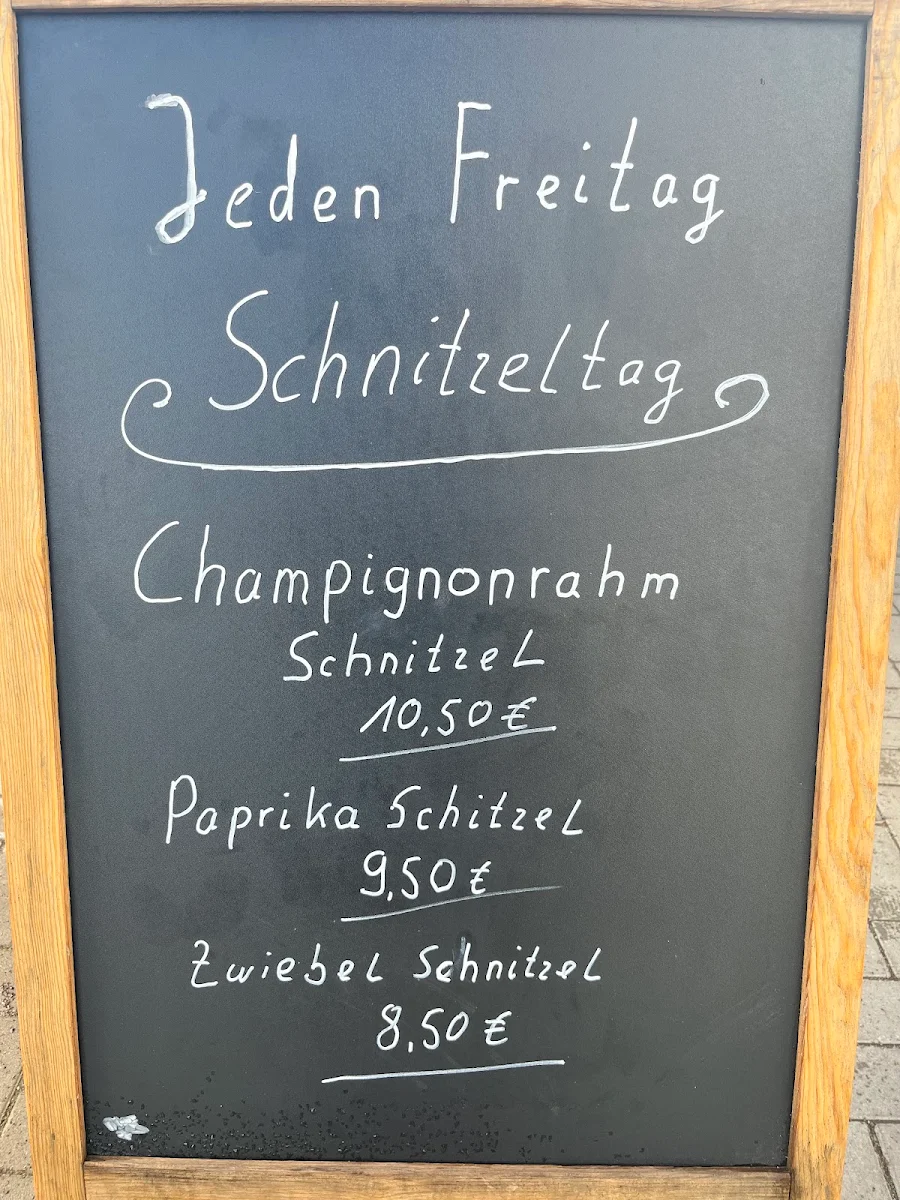 Jeden Freitag
Schnitzeltag
Champignonrahm
Schnitzel
10,50 €
Paprika Schitzel
9,50 €
Zwiebel Schnitzel
8,50 €